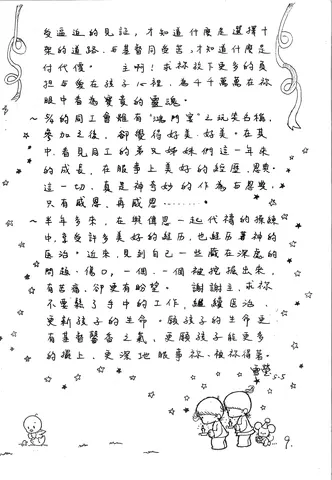 受逼迫的見証，才知道什麼是選擇十
架的道路，与基督同受苦，才知道什麼是
付代價。　主啊！求祢放下更多的負
担与愛在孩子心裡，為千千萬萬在祢
眼中看為寶貴的靈魂。
~ 的同工會雖有"鴻門宴"之玩笑名稱，
參加之後，卻覺得好美、好美。在其
中，看見同工的弟兄姊妹們這一年來
的成長，在服事上美好的經歷、恩典。
這一切，真是神奇妙的作為与恩典，
只有感恩，再感恩………。
~ 半年多來，在與傳恩一起代禱的操練
中，享受許多美好的經历，也經历著神的
医治。近來，見到自己一些藏在深處的
問題、傷口，一個、一個被挖掘出來，
有苦痛，卻更有盼望。　謝謝主，求祢
不要鬆了手中的工作，繼續医治、
更新孩子的生命。願孩子的生命更
有基督馨香之氣，更願孩子能更多
的擺上，更深地服事祢、被祢得著。
雪瑩
5-5
9.